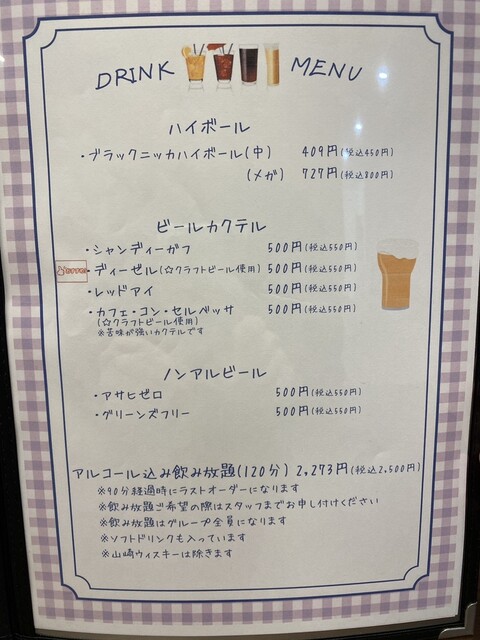 DRINK MENU
ハイボール
・ブラックニッカハイボール(中) 409円(税込450円)
(メガ) 727円(税込800円)
ビールカクテル
・シャンディーガフ 500円(税込550円)
・ディーゼル(☆クラフトビール使用) 500円(税込550円)
・レッドアイ 500円(税込550円)
・カフェ・コン・セルベッサ 500円(税込550円)
(☆クラフトビール使用)
※苦味が強いカクテルです
ノンアルビール
・アサヒゼロ 500円(税込550円)
・グリーンズフリー 500円(税込550円)
アルコール込み飲み放題(120分) 2,273円(税込2,500円)
※90分経過時にラストオーダーになります
※飲み放題ご希望の際はスタッフまでお申し付けください
※飲み放題はグループ全員になります
※ソフトドリンクも入っています
※山崎ウィスキーは除きます